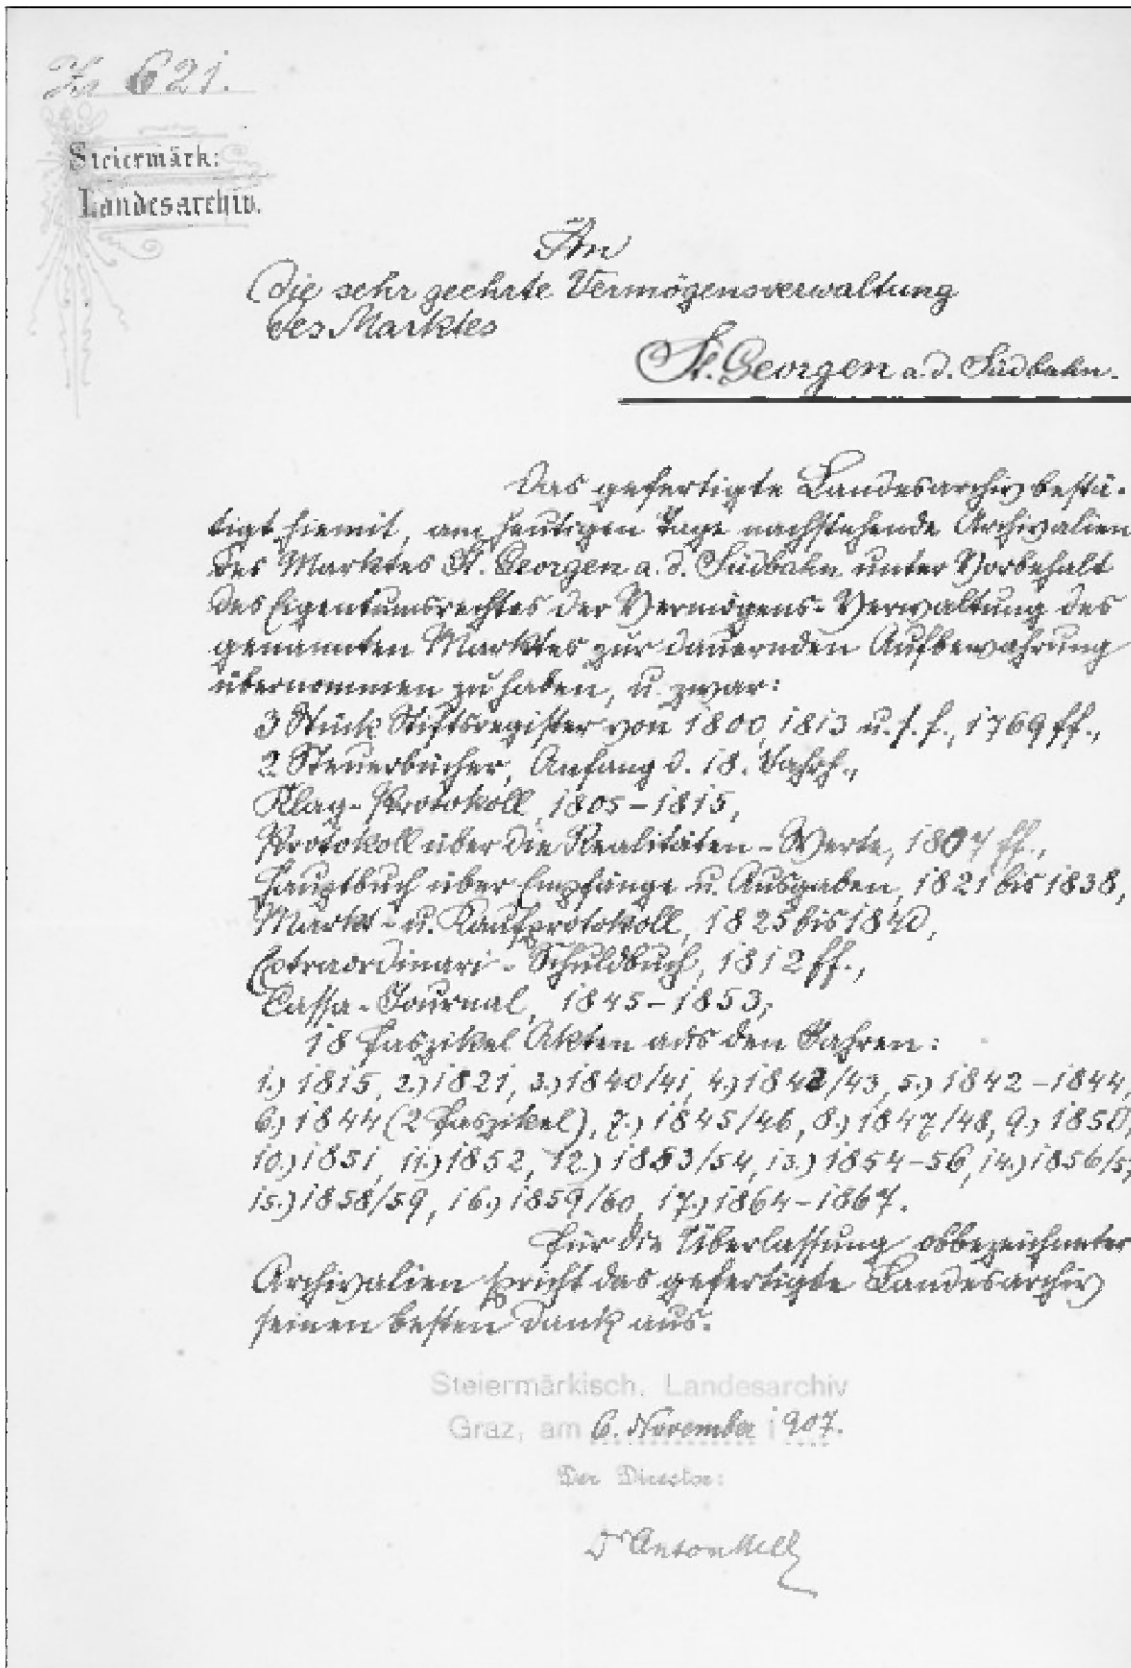 Z. 621.
Steiermärk:
Landesarchiv.
An
die sehr geehrte Vermögensverwaltung
des Marktes
St. Georgen a. d. Südbahn.
Das gefertigte Landesarchiv bestä-
tigt hiemit, am heutigen Tage nachstehende Archivalien
des Marktes St. Georgen a. d. Südbahn unter Vorbehalt
des Eigentumsrechtes der Vermögens-Verwaltung des
genannten Marktes zur dauernden Aufbewahrung
übernommen zu haben, u. zwar:
3 Stück Stiftsregister von 1800, 1813 u. s. f., 1769 ff.,
2 Steuerbücher, Anfang d. 18. Jahrh.,
Klag-Protokoll, 1805-1815,
Protokoll über die Realitäten-Werte, 1807 ff.,
Hauptbuch über Empfänge u. Ausgaben, 1821 bis 1838,
Markt- u. Kaufprotokoll, 1825 bis 1840,
Extraordinari-Schuldbuch, 1812 ff.,
Cassa-Journal, 1845-1853,
18 Faszikel Akten aus den Jahren:
1.) 1815, 2.) 1821, 3.) 1840/41, 4.) 1842/43, 5.) 1842-1844,
6.) 1844 (2 Faszikel), 7.) 1845/46, 8.) 1847/48, 9.) 1850,
10.) 1851, 11.) 1852, 12.) 1853/54, 13.) 1854-56, 14.) 1856/57
15.) 1858/59, 16.) 1859/60, 17.) 1864-1867.
Für die Überlassung obbezeichneter
Archivalien spricht das gefertigte Landesarchiv
seinen besten Dank aus.
Steiermärkisch. Landesarchiv
Graz, am 6. November 1907.
Der Director:
Dr Anton Mell